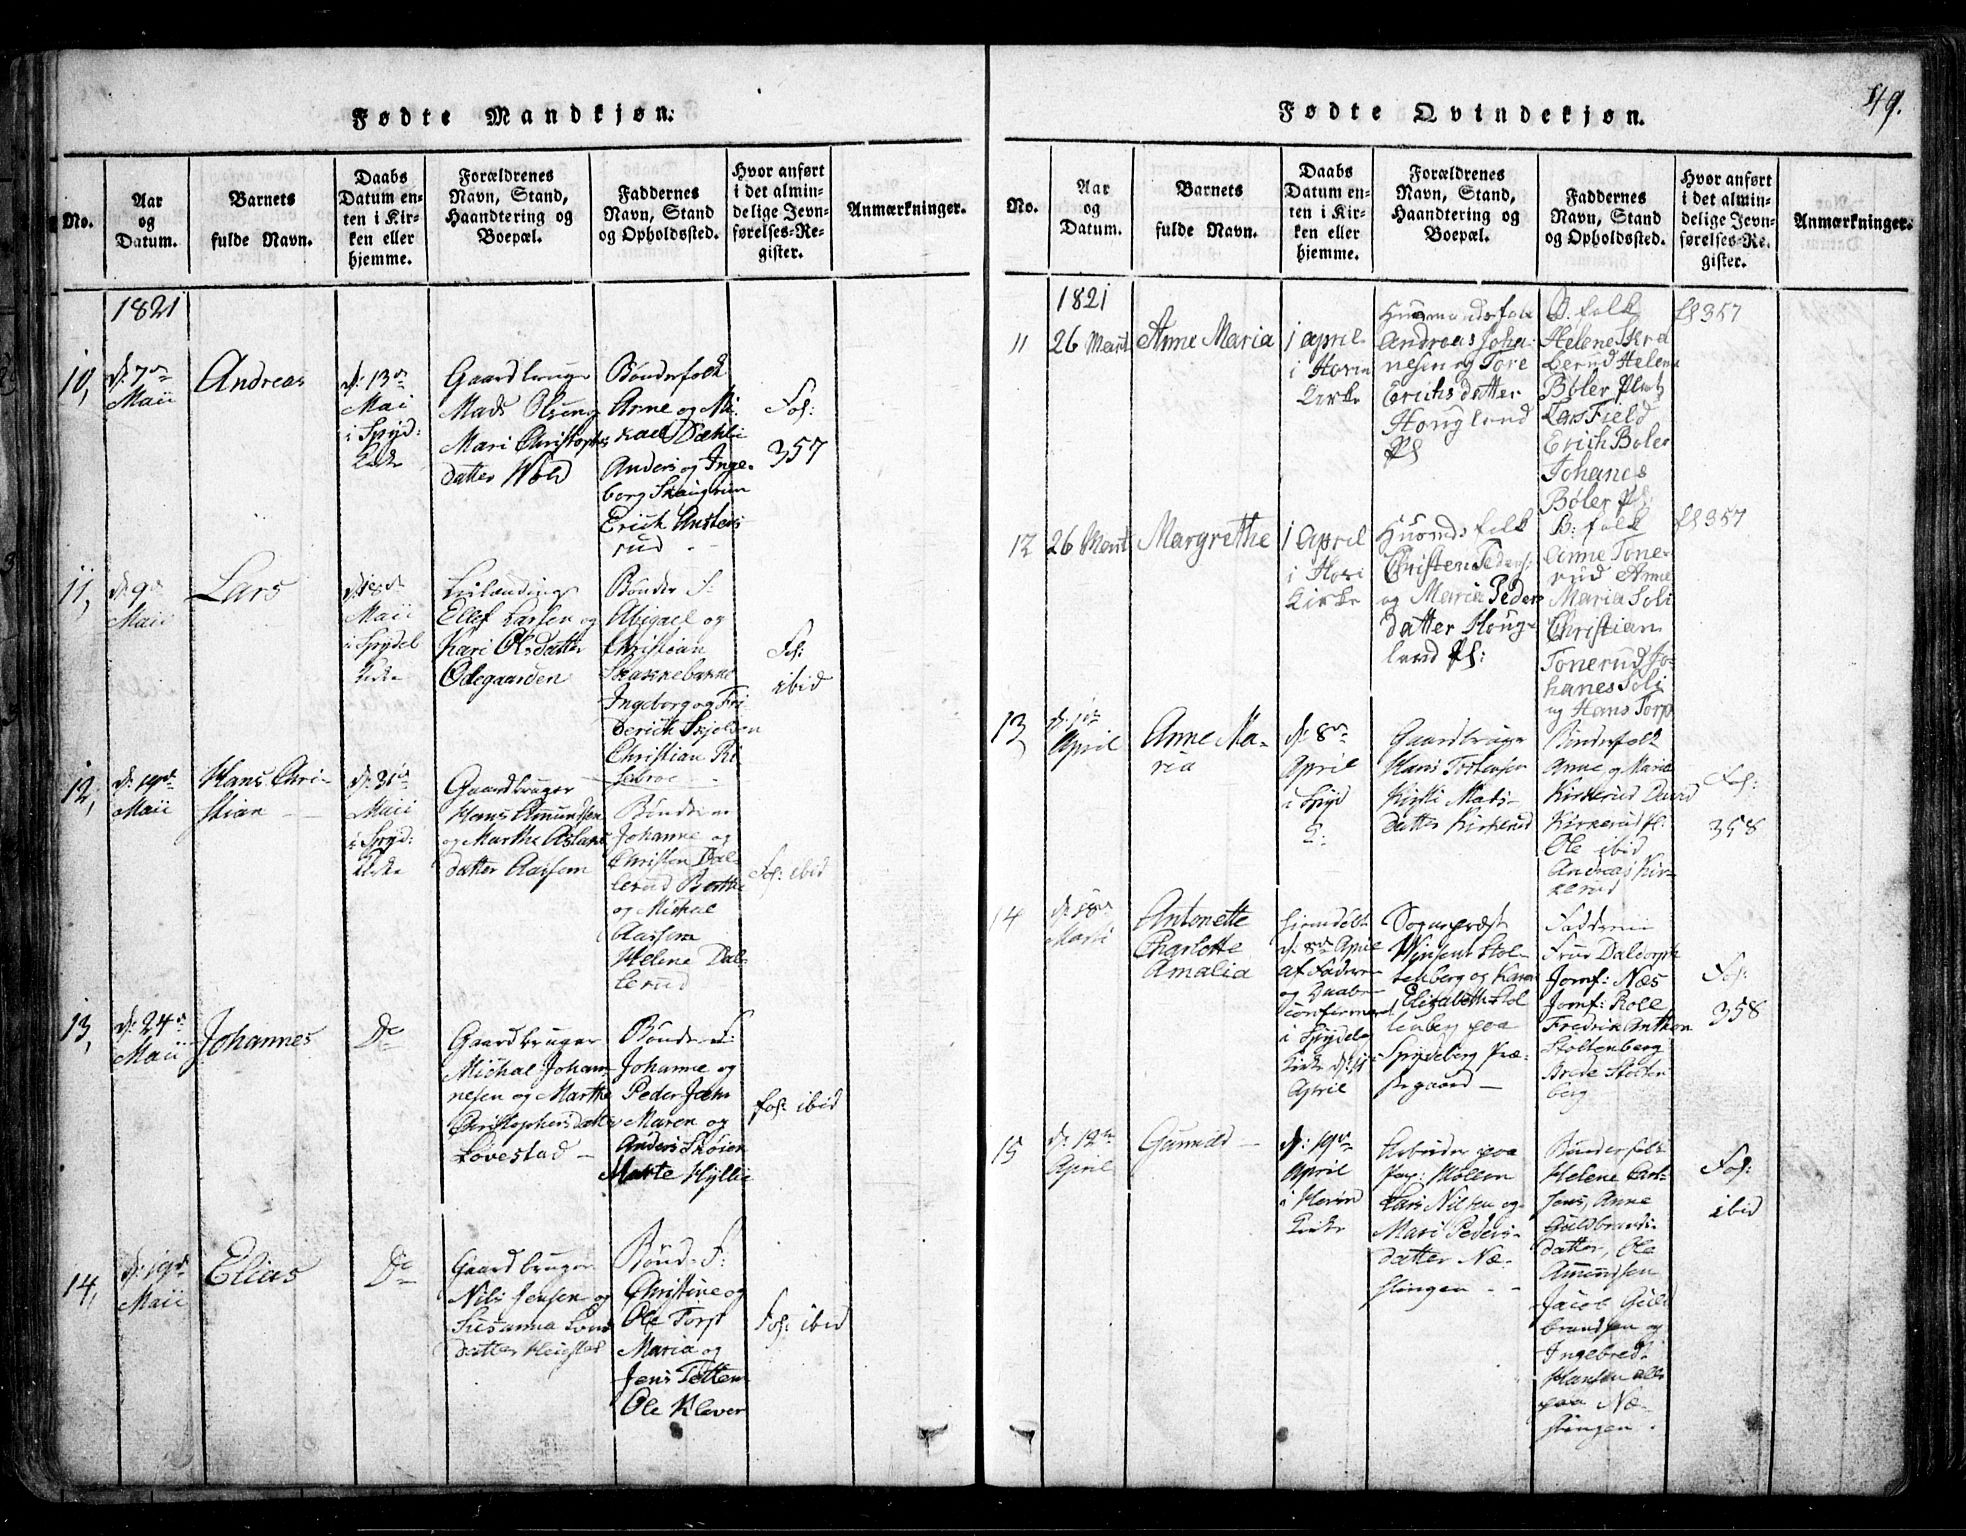 49.
Fødte Mandkjøn:
No.
Aar
og
Datum.
Barnets
fulde Navn.
Daabs
Datum en-
ten i Kir-
ken eller
hjemme.
Forældrenes
Navn, Stand,
Haandtering og
Boepæl.
Faddernes
Navn, Stand
og Opholdssted.
Hvor anført
i det almin-
delige Jevn-
førelses-Re-
gister.
Anmærkninger.
1821
10,
d: 7de
Maii
Andreas
d: 13de
Mai
i Spyd:
Kirke
Gaardbruger
Mads Olsen og
Mari Christophers
datter Wold
Bønderfolk
Anne og Mi-
kael Dæhli
Anders og Inge-
borg Skaugrim
Erich
rud
Fol:
357
11,
d: 9de
Maii
Lars
Maii
i Spydeb
Kirke
Ellef Larsen og
Kari Olsdatter
Ødegaarden
Bønder F:
Abigael og
Christian
Ingeborg og Fri
derich
Christian
Fol:
ibid
12,
d: 19de
Maii
Hans Chri-
stian
d: 31te
Maii
i Spyd:
Kirke
Gaardbruger
Hans Amundsen
og Marthe
datter Aassem
Johanne og
Christen Dal-
lerud Berthe
og Michal
Aassem
Helene Dal-
lerud
Fol: ibid
13,
d: 24de
Maii
Johannes
Do
Gaardbruger
Michal Johan-
nesen og Marthe
Christophersdatter
Løvestad
Bønder F:
Johanne og
Peder
Maren og
Anders Skøien
Marte Hyllie
Fol: ibid
14,
d: 19de
Maii
Elias
Do
Gaardbruger
Nils Jensen og
Susanna
datter
Bønd. F:
Christine og
Ole Torp
Maria og
Jens Tetten
Ole Klever
Fol: ibid
Fødte Qvindekjøn.
No.
Aar
og
Datum.
Barnets
fulde Navn.
Daabs
Datum en-
ten i Kir-
ken eller
hjemme.
Forældrenes
Navn, Stand,
Haandtering og
Boepæl.
Faddernes
Navn, Stand
og Opholdssted.
Hvor anført
i det almin-
delige Jevn-
førelses-Re-
gister.
Anmærkninger.
1821
11
26 Marti
Anne Maria
1 april
i Hovin
Kirke
Huusmandsfolk
Andreas Joha-
nesen og Tore
Erichsdatter
Hougland
Pl
B. folk
Helene Skra
berud Helene
Bøler Plads
Lars Field
Erich Boler
Johanes
Bøler Pl:
fl 357
12
26 Marti
Margrethe
1 April
i Hovi
Kirke
Huusmds folk
Christen Peders:
og Maria Peders
datter Houg-
land Pl:
B: folk
Anne Tone-
rud Anne
Maria Soli
Christian
Tonerud Jo-
hanes Soli
og Hans Torp
fl 357
13,
d: 1te
April
Anne Ma-
ria
d: 8de
April
i Spyd
Gaardbruger
Hans Torstensen
Kirsti Mats-
datter Kirkerud
Bønderfolk
Anne og Marie
Kirkerud David
Kirkerud pl:
Ole ibid
Andreas Kir-
kerud
Fol:
358
14
d: 18de
Marti
Antonette
Charlotte
Amalia
hiemdøbt
d: 8de April
af Faderen
og Daaben
confirmeret
i Spydeb
Kirke
April
Sognepræst
Winsent Stol-
tenberg og Karen
Elizabeth Stol
tenberg paa
Spydeberg Præ-
stegaard
Fadderne
Frue Daldorph
Jomf: Næs
Jomf: Roll
Fredrik Anthon
Stoltenberg
Brede Stolten
berg
Fol:
358
15
d: 12te
April
Gunnild
d: 19de
April
i Hovin
Kirke
Arbeider paa
Lars Nilsen og
Mari Peders-
datter Næ-
slingen
Bønderfolk
Helene
Anne
Guldbrands-
datter, Ole
Amundsen
Jacob Guld
brandsen og
Ingebred
Hansen alle
paa Næ-
slingen.
Fol:
ibid